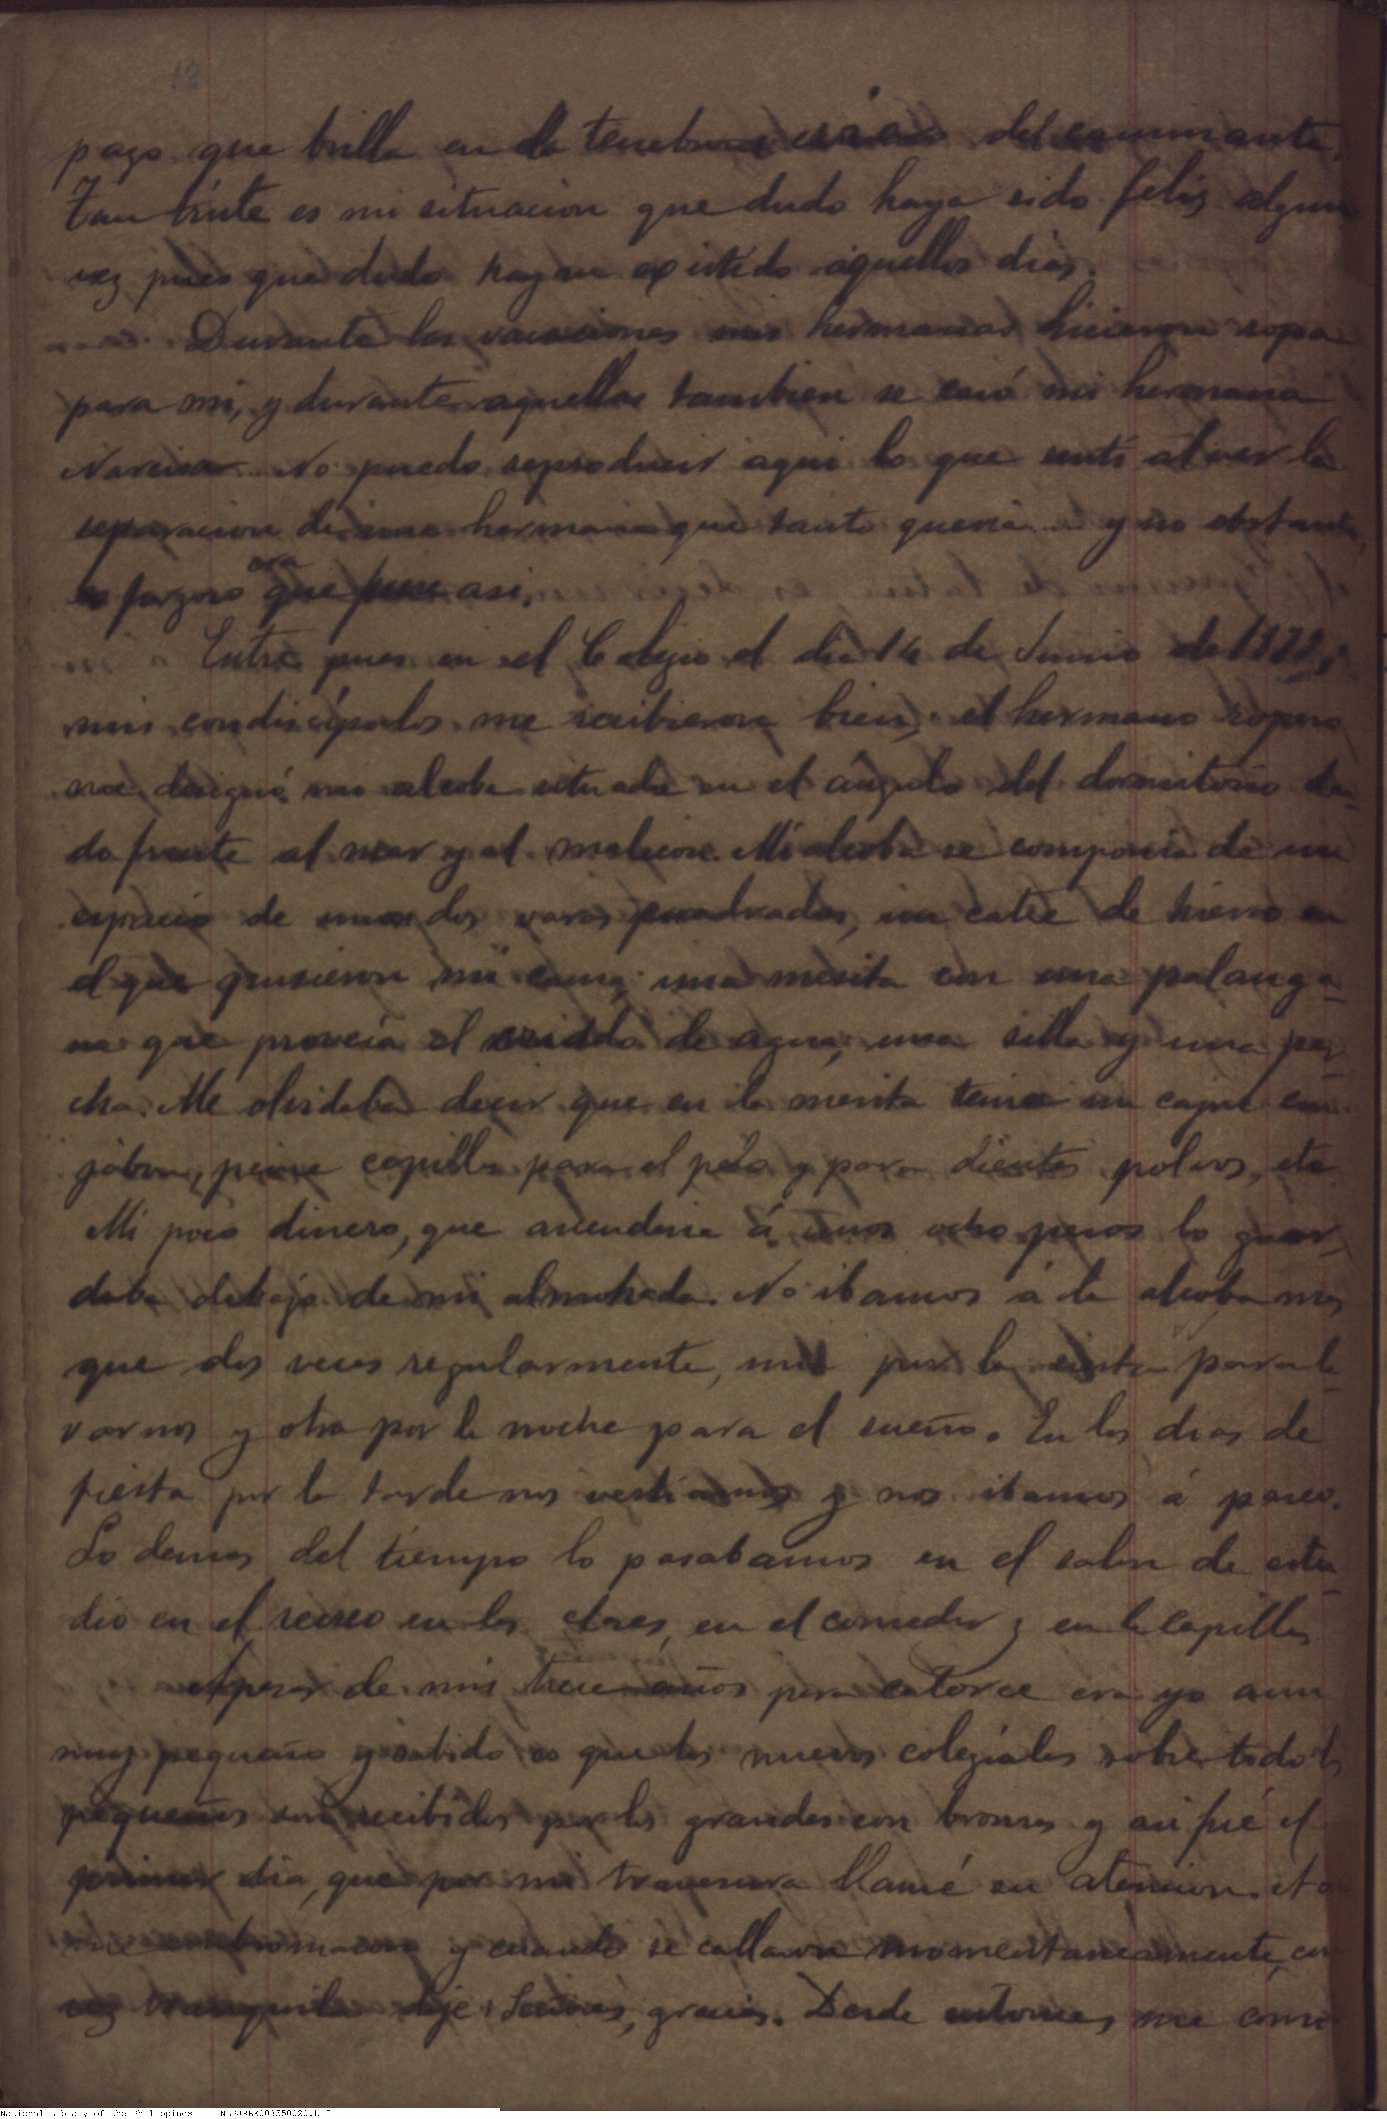 12
pago que brilla en la tenebrosa del caminante.
Tan triste es mi situacion que dudo haya sido feliz alguna
vez pues que dudo hayan existido aquellos dias.
Durante las vacaciones mis hermanas hicieron ropa
para mi, y durante aquellas tambien se casó mi hermana
Narcisa. No puedo reproducir aqui lo que sentí al ver la
separacion de una hermana que tanto queria y no obstante,
es forzoso era que fuese asi.
Entré pues en el Colegio el dia 16 de Junio de
mis condiscípulos me recibieron bien; el hermano ropero
me designó mi alcoba situada en el ángulo del dormitorio dan-
do frente al mar y al malecon. Mi alcoba se componia de un
espacio de unas dos varas cuadradas, un catre de hierro en
el que pusieron mi cama; una mesita con una palanga-
na que proveia el criado de agua, una silla y una per-
cha. Me olvidaba decir que en la mesita tenia un cajon con
jabon, peine cepillos para el pelo y para dientes polvos, etc.
Mi poco dinero, que ascenderia á unos ocho pesos lo guar-
daba debajo de mi almohada. No ibamos á la alcoba mas
que dos veces regularmente, una por la siesta para la-
varnos y otra por la noche para el sueño. En los dias de
fiesta por la tarde nos vestiamos y nos ibamos á paseo.
Lo demas del tiempo lo pasabamos en el salon de estu-
dio en el recreo en las clases, en el comedor y en la capilla
Apesar de mis trece años para catorce era yo aun
muy pequeño y sabido es que los nuevos colegiales sobre todo los
pequeños son recibidos por los grandes con bromas y asi fué el
primer dia, que por mi travesura llamé su atencion.
me embromaron y cuando se callaron momentaneamente, con
voz tranquila dije: Señores, gracias. Desde entonces me consi